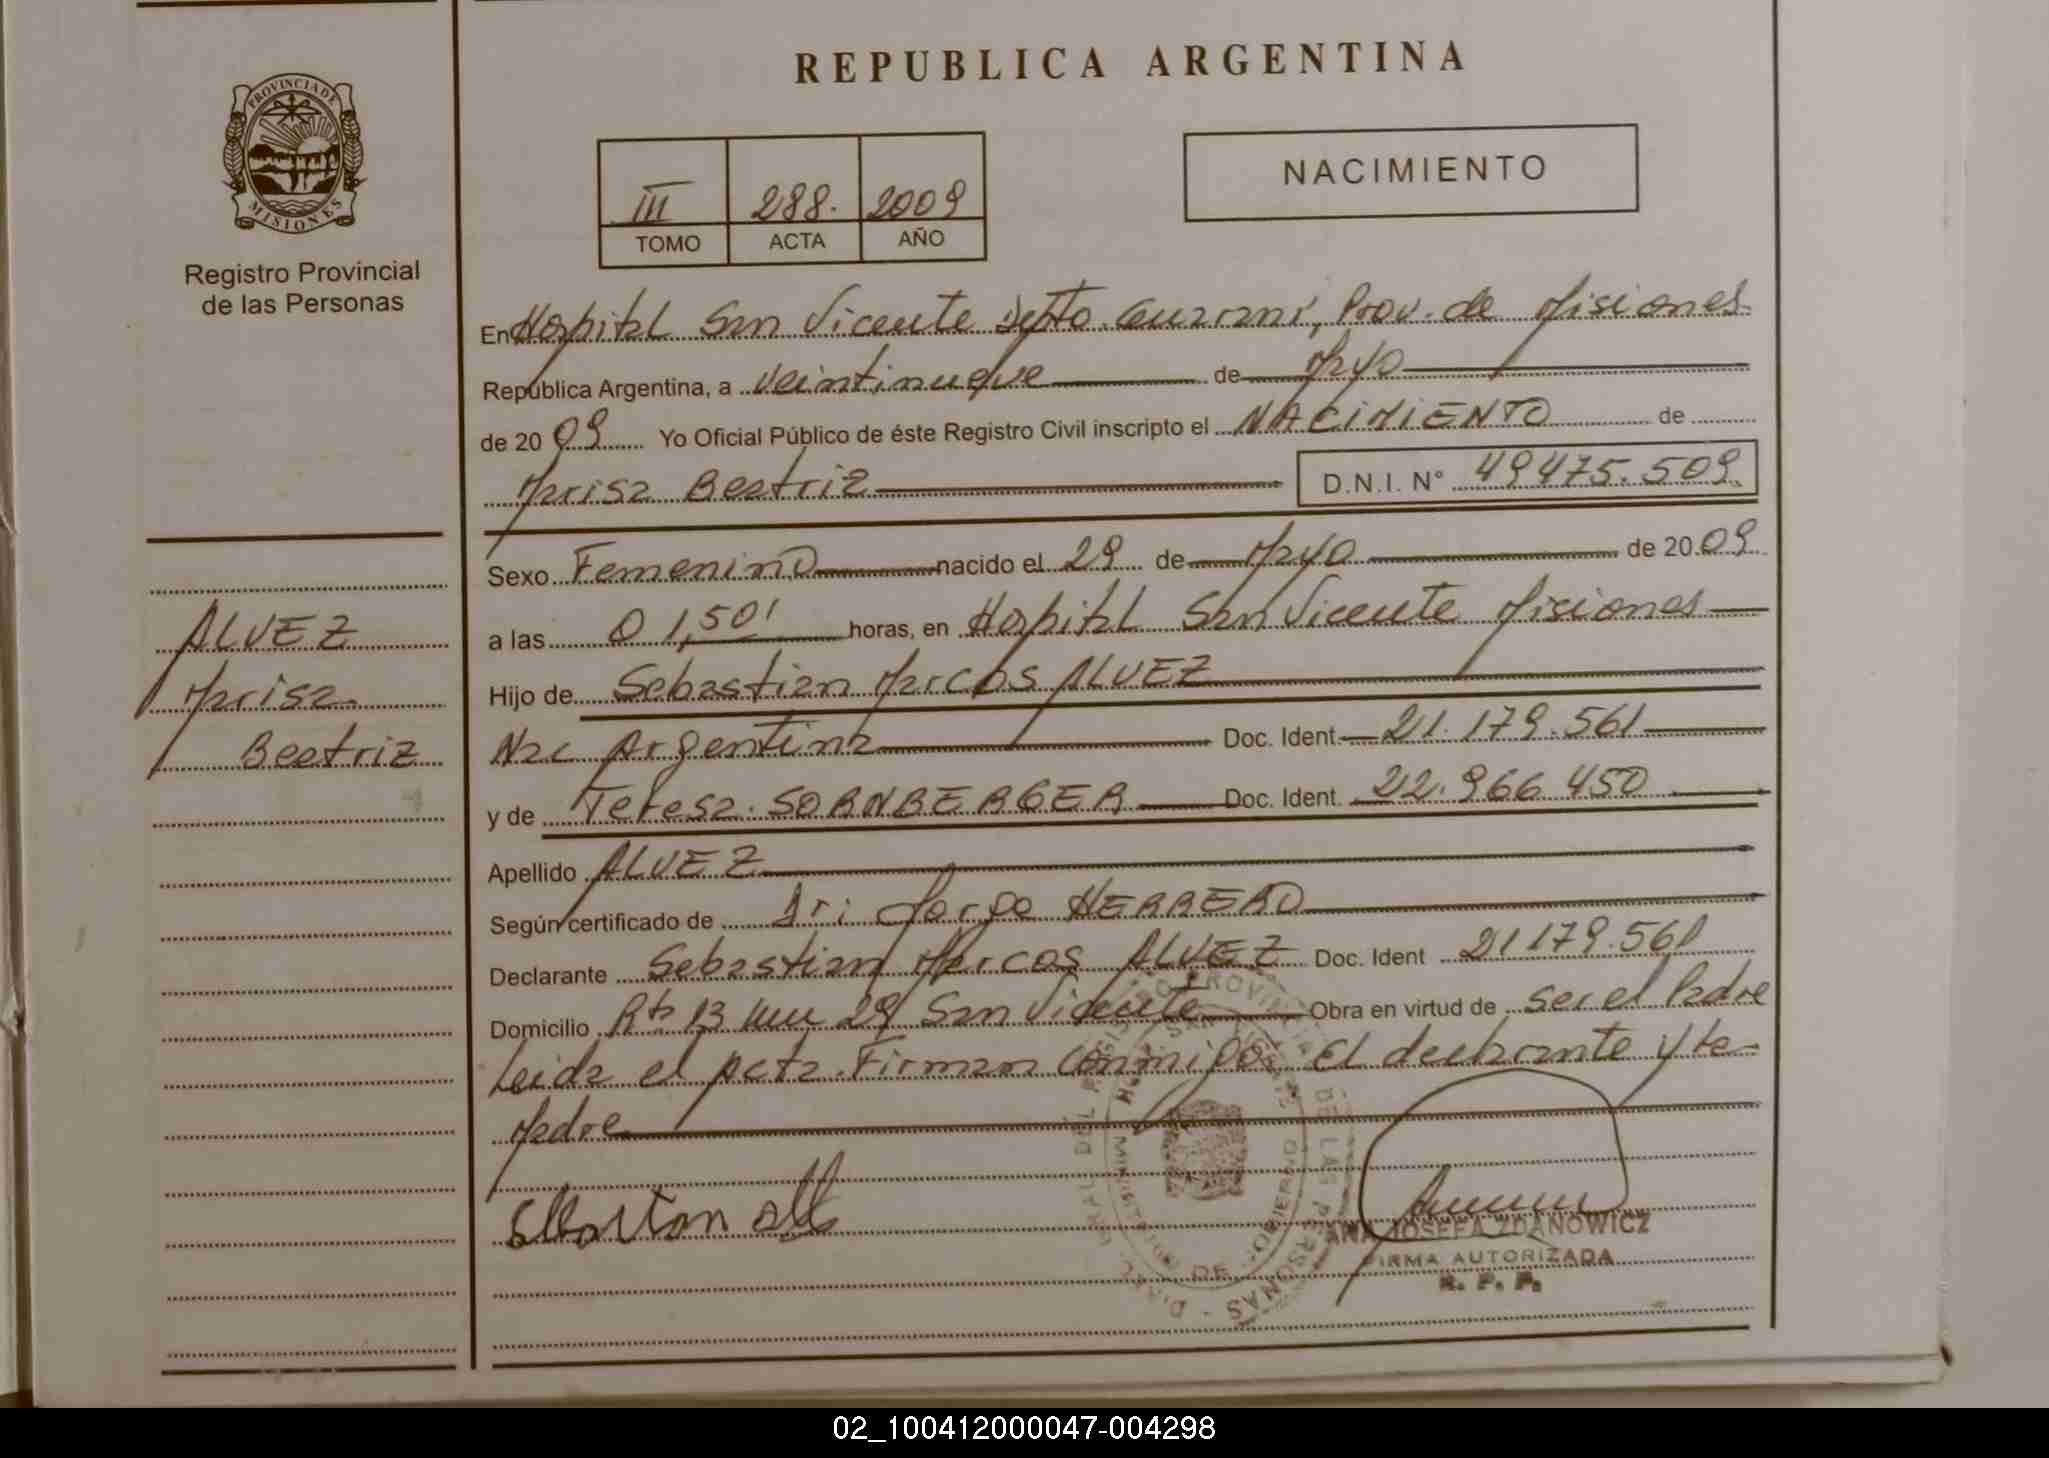 REPUBLICA ARGENTINA
PROVINCIA DE
MISIONES
Registro Provincial
de las Personas
III 288. 2009
TOMO ACTA AÑO
NACIMIENTO
En Hospital San Vicente Depto. Guarani, Prov. de Misiones
República Argentina, a veintinueve de Mayo
de 20 09 Yo Oficial Público de éste Registro Civil inscripto el NACIMIENTO de
Marisa Beatriz D.N.I. N° 49475.509
Sexo Femenino nacido el 29 de Mayo de 20 09
a las 01,50' horas, en Hospital San Vicente Misiones
Hijo de Sebastian Marcos ALVEZ
Nac Argentina Doc. Ident. 21.179.561
y de Teresa SORNBERGER Doc. Ident. 22.966.450
Apellido ALVEZ
Según certificado de Dr: Jorge HERRERO
Declarante Sebastian Marcos ALVEZ Doc. Ident 21179.561
Domicilio Rta 13 km 29 San Vicente Obra en virtud de ser el Padre
Leida el acta. Firman conmigo: El declarante y la
Madre
ALVEZ
Marisa
Beatriz
ANA JOSEFA ZDANOWICZ
FIRMA AUTORIZADA
R. P. P.
02_100412000047-004298